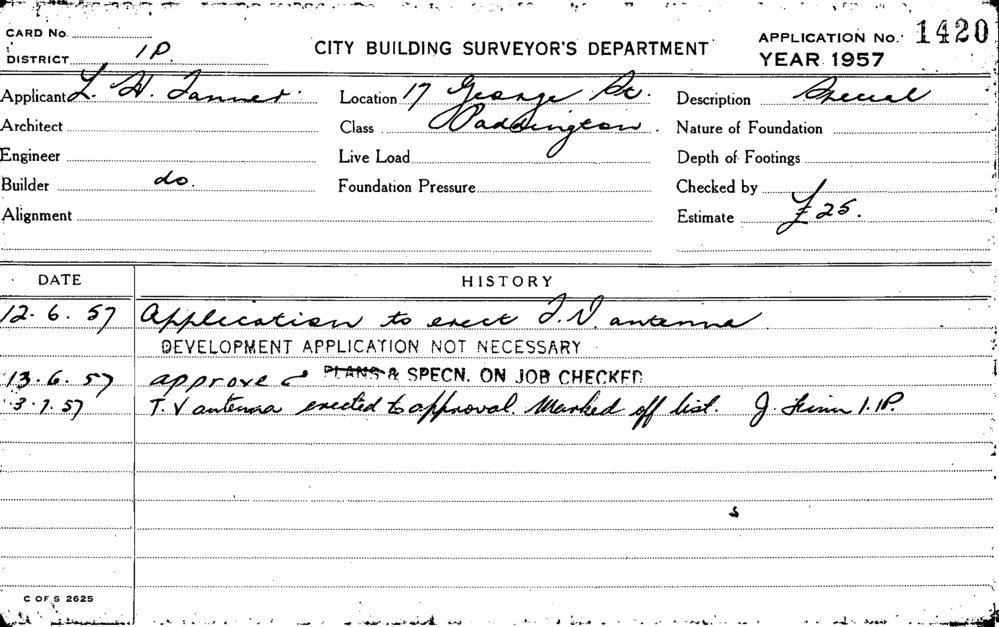 CARD No.
DISTRICT 1P.
CITY BUILDING SURVEYOR'S DEPARTMENT
APPLICATION No. 1420
YEAR 1957
Applicant L. H. Tanner. Location 17 George St. Description Special
Architect Class Paddington. Nature of Foundation
Engineer Live Load Depth of Footings
Builder do. Foundation Pressure Checked by
Alignment Estimate £25.
DATE HISTORY
12.6.57 Application to erect T.V. antenna
DEVELOPMENT APPLICATION NOT NECESSARY
13.6.57 approved PLANS & SPECN. ON JOB CHECKED
3.7.57 T.V antenna erected to approval. Marked off list. J. 1.P.
C OF S 2625